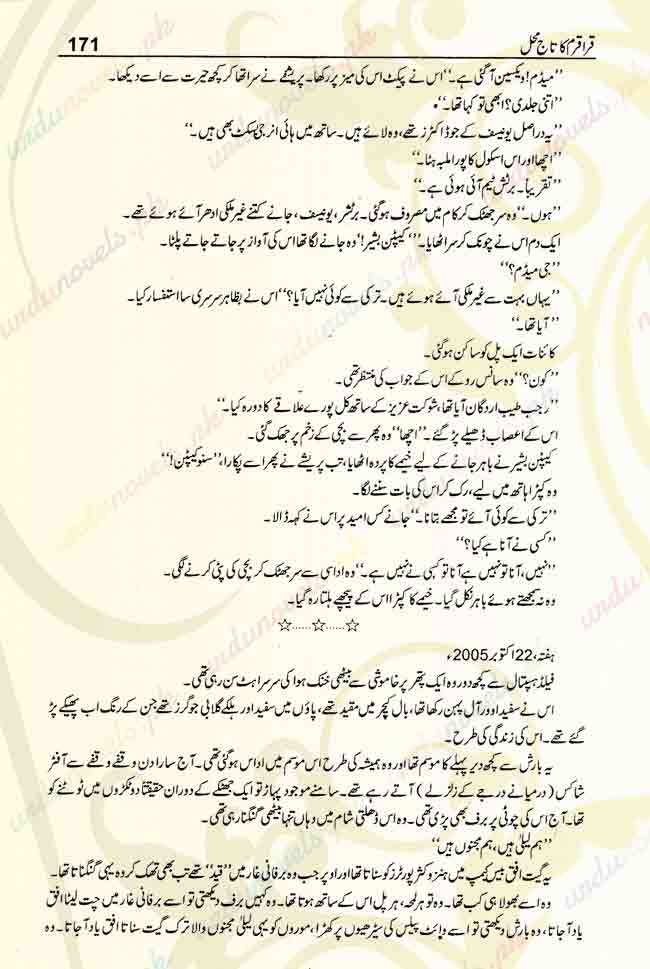 قراقرم کا تاج محل 171
’’میڈم! ویکسین آ گئی ہے۔‘‘ اس نے پیکٹ اس کی میز پر رکھا۔ پریشے نے سر اٹھا کر کچھ حیرت سے اسے دیکھا۔
’’اتنی جلدی؟ ابھی تو کہا تھا۔‘‘
’’یہ دراصل یونیسف کے جو ڈاکٹرز تھے، وہ لائے ہیں۔ ساتھ میں ہائی انرجی بسکٹ بھی ہیں۔‘‘
’’اچھا اور اس اسکول کا پورا ملبہ ہٹا۔‘‘
’’تقریباً۔ برٹش ٹیم آئی ہوئی ہے۔‘‘
’’ہوں۔‘‘ وہ سر جھٹک کر کام میں مصروف ہو گئی۔ برٹشر، یونیسف، جانے کتنے غیر ملکی ادھر آئے ہوئے تھے۔
ایک دم اس نے چونک کر سر اٹھایا۔ ’’کیپٹن بشیر!‘‘ وہ جانے لگا تھا اس کی آواز پر جاتے جاتے پلٹا۔
’’جی میڈم؟‘‘
’’یہاں بہت سے غیر ملکی آئے ہوئے ہیں۔ ترکی سے کوئی نہیں آیا؟‘‘ اس نے بظاہر سرسری سا استفسار کیا۔
’’آیا تھا۔‘‘
کائنات ایک پل کو ساکن ہو گئی۔
’’کون؟‘‘ وہ سانس روکے اس کے جواب کی منتظر تھی۔
’’رجب طیب اردگان آیا تھا، شوکت عزیز کے ساتھ کل پورے علاقے کا دورہ کیا۔‘‘
اس کے اعصاب ڈھیلے پڑ گئے۔ ’’اچھا‘‘ وہ پھر سے بچی کے زخم پر جھک گئی۔
کیپٹن بشیر نے باہر جانے کے لیے خیمے کا پردہ اٹھایا، تب پریشے نے پھر اسے پکارا، ’’سنو کیپٹن!‘‘
وہ کپڑا ہاتھ میں لیے، رک کر اس کی بات سننے لگا۔
’’ترکی سے کوئی آئے تو مجھے بتانا۔‘‘ جانے کس امید پر اس نے کہہ ڈالا۔
’’کسی نے آنا ہے کیا؟‘‘
’’نہیں، آنا تو نہیں ہے آنا تو کسی نے نہیں ہے۔‘‘ وہ اداسی سے سر جھٹک کر بچی کی پٹی کرنے لگی۔
وہ نہ سمجھتے ہوئے باہر نکل گیا۔ خیمے کا کپڑا اس کے پیچھے ہلتا رہ گیا۔
☆......☆......☆
ہفتہ، 22 اکتوبر 2005ء
فیلڈ ہسپتال سے کچھ دور وہ ایک پتھر پر خاموشی سے بیٹھی خنک ہوا کی سرسراہٹ سن رہی تھی۔
اس نے سفید اوور آل پہن رکھا تھا، بال کیچر میں مقید تھے، پاؤں میں سفید اور ہلکے گلابی جوگرز تھے جن کے رنگ اب پھیکے پڑ
گئے تھے۔ اس کی زندگی کی طرح۔
یہ بارش سے کچھ دیر پہلے کا موسم تھا اور وہ ہمیشہ کی طرح اس موسم میں اداس ہو گئی تھی۔ آج سارا دن وقفے وقفے سے آفٹر
شاکس (درمیانے درجے کے زلزلے) آتے رہے تھے۔ سامنے موجود پہاڑ تو ایک جھٹکے کے دوران حقیقتاً دو ٹکڑوں میں ٹوٹنے کو
تھا۔ آج اس کی چوٹی پر برف بھی پڑی تھی۔ وہ اس ڈھلتی شام میں وہاں تنہا بیٹھی گنگنا رہی تھی۔
’’ہم لیلیٰ ہیں، ہم مجنوں ہیں‘‘
یہ گیت افق بیس کیمپ میں ہنزو کٹز پورٹرز کو سناتا تھا اور اوپر جب وہ برفانی غار میں ’’قید‘‘ تھے تب بھی تھک کر وہ یہی گنگناتا تھا۔
وہ اسے بھولا ہی کب تھا۔ وہ تو ہر لمحہ، ہر پل اس کے ساتھ ہوتا تھا۔ وہ کہیں برف دیکھتی تو اسے برفانی غار میں چت لیٹا افق
یاد آ جاتا، وہ بارش دیکھتی تو اسے وائٹ پیلس کی سیڑھیوں پر کھڑا، موروں کو یہی لیلیٰ مجنوں والا ترک گیت سناتا افق یاد آ جاتا۔ وہ
urdunovels.pk